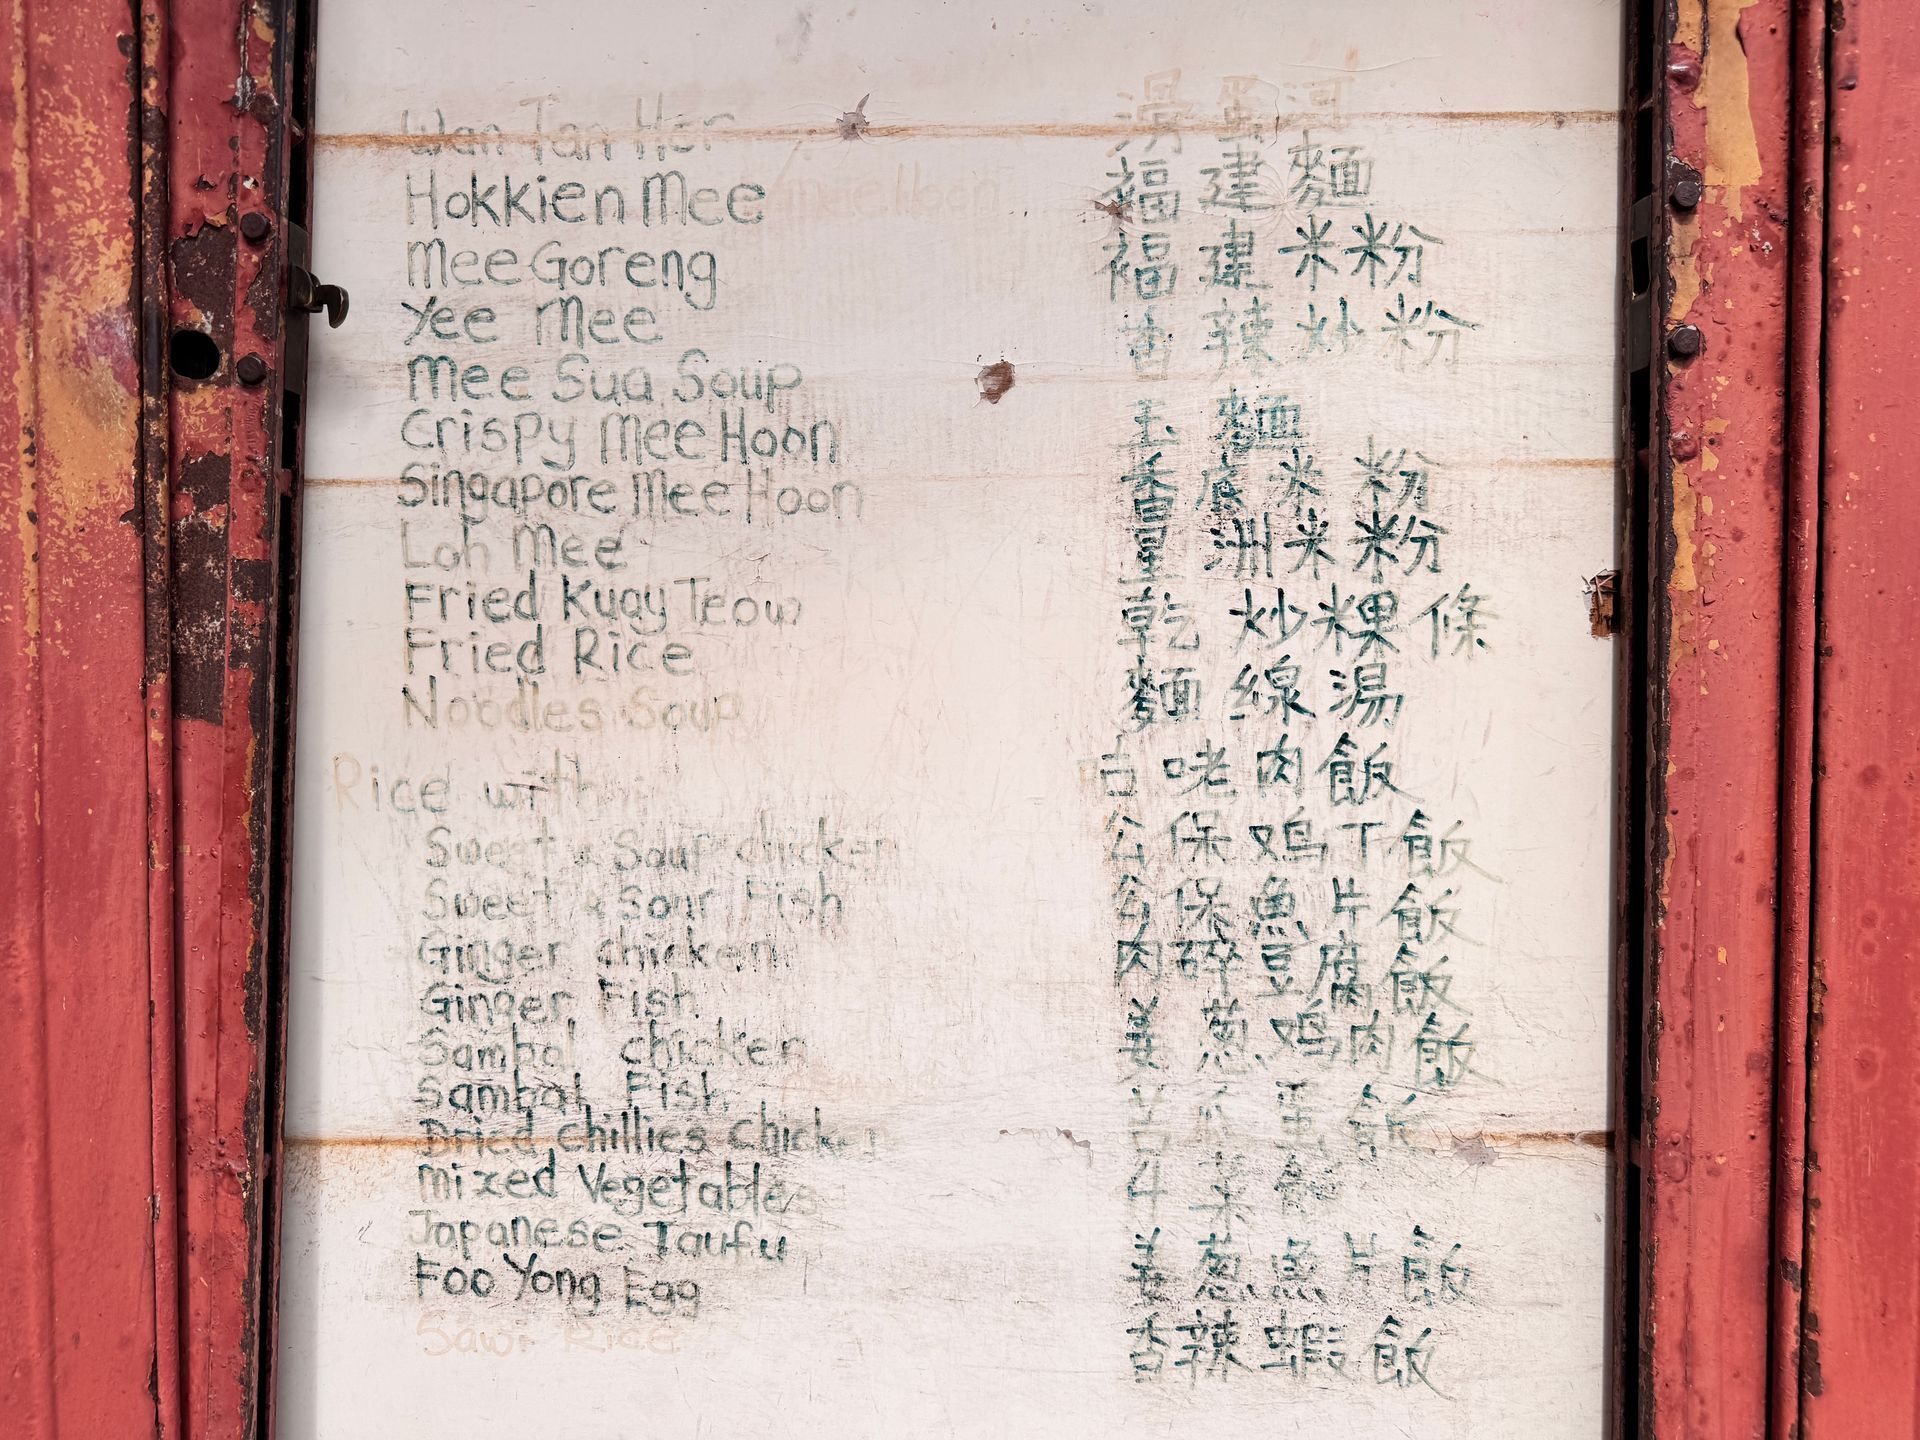 Wan Tan Her
Hokkien Mee
Mee Goreng
Yee Mee
Mee Sua Soup
Crispy Mee Hoon
Singapore Mee Hoon
Loh Mee
Fried Kuay Teow
Fried Rice
Noodles Soup
Rice with
Sweet & Sour chicken
Sweet & Sour Fish
Ginger chicken
Ginger Fish
Sambal chicken
Sambal Fish
Dried chillies chicken
Mixed Vegetables
Japanese Taufu
Foo Yong Egg
Sawi Rice
滑蛋河
福建麵
福建米粉
香辣炒粉
麵
香底米粉
星洲米粉
乾炒粿條
麵線湯
古咾肉飯
公保鸡丁飯
公保魚片飯
肉碎豆腐飯
姜葱鸡肉飯
蛋飯
菜飯
姜葱魚片飯
香辣蝦飯